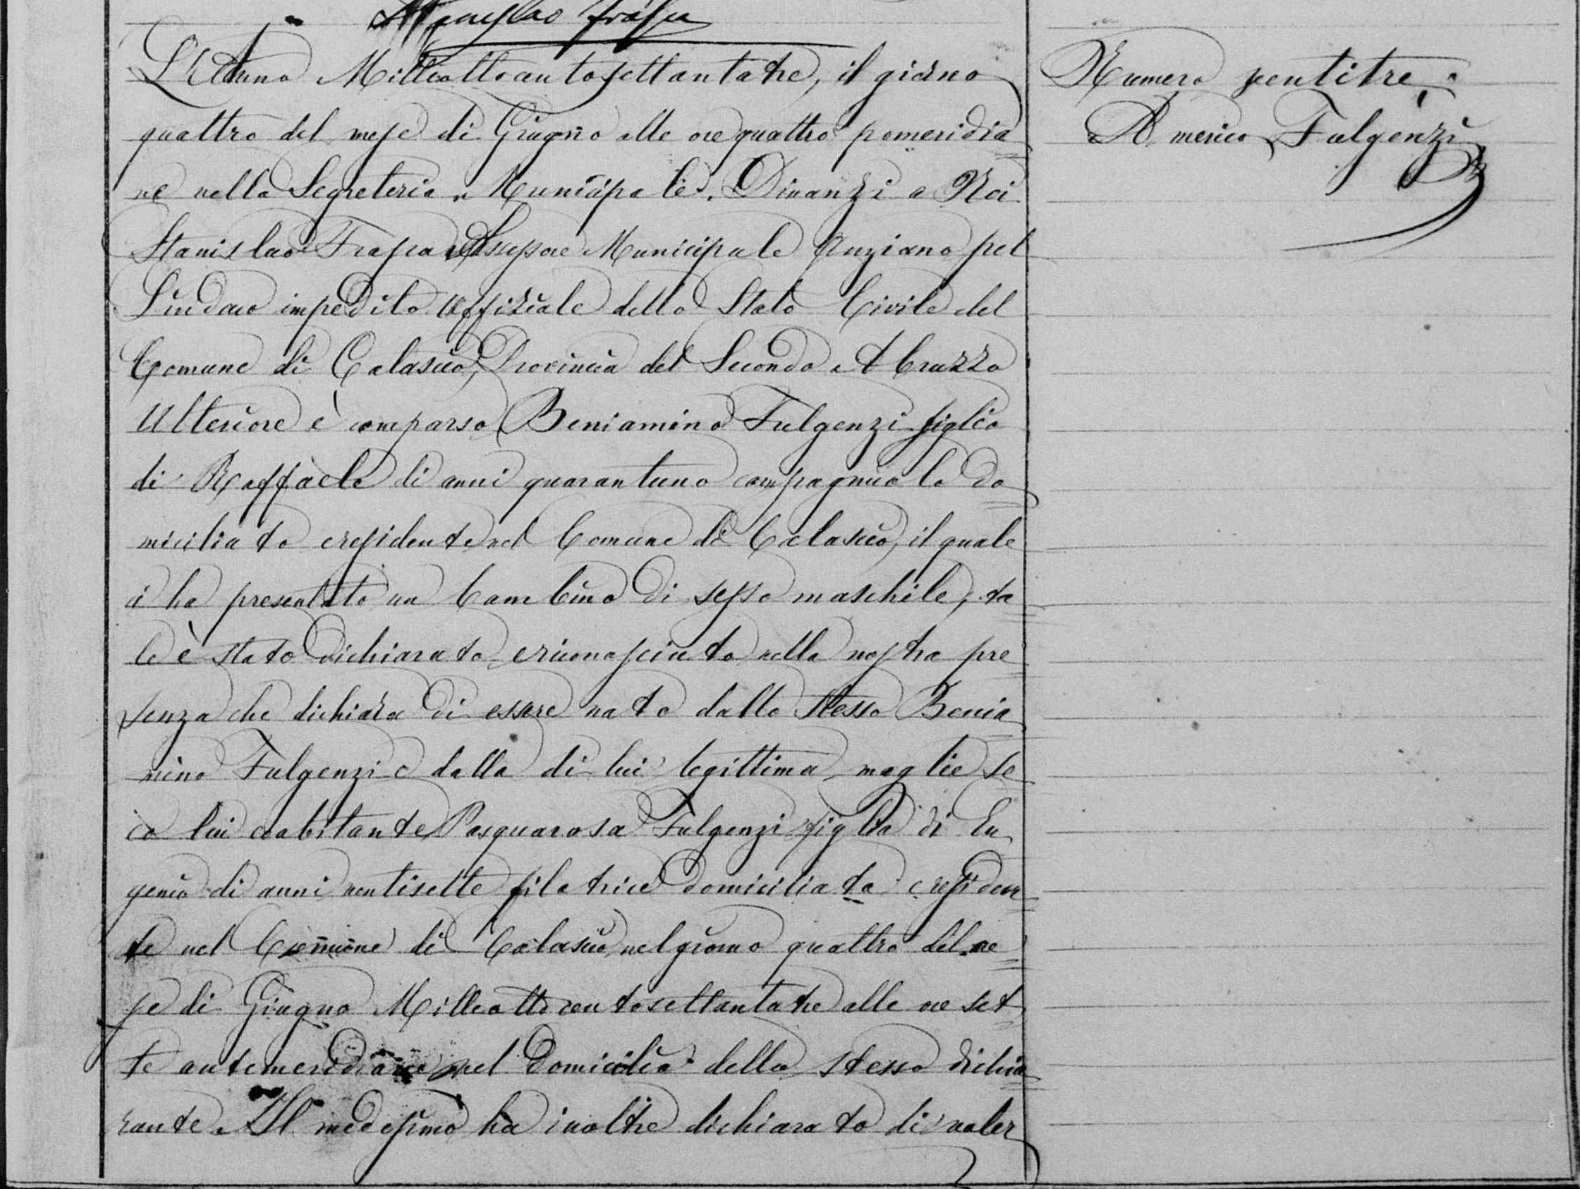 Stanislao Frasca
L'Anno Milleottocentosettantatre, il giorno
quattro del mese di Giugno alle ore quattro pomeridia
ne nella Segreteria Municipale. Dinanzi a Noi
Stanislao Frasca Assessore Municipale Anziano pel
Sindaco impedito Uffiziale dello Stato Civile del
Comune di Calascio, Provincia del Secondo Abruzzo
Ulteriore è comparso Beniamino Fulgenzi figlio
di Raffaele di anni quarantuno campagnuolo do
miciliato e residente nel Comune di Calascio, il quale
ci ha presentato un bambino di sesso maschile, ta
le è stato dichiarato e riconosciuto nella nostra pre
senza che dichiara di essere nato dallo stesso Benia
mino Fulgenzi e dalla di lui legittima moglie se
co lui coabitante Pasquarosa Fulgenzi figlia di Eu
genio di anni ventisette filatrice domiciliata e residen
te nel Comune di Calascio, nel giorno quattro del me
se di Giugno Milleottocentosettantatre alle ore set
te antemeridiane nel domicilio dello stesso dichia
rante. Il medesimo ha inoltre dichiarato di voler
Numero ventitre
Americo Fulgenzi